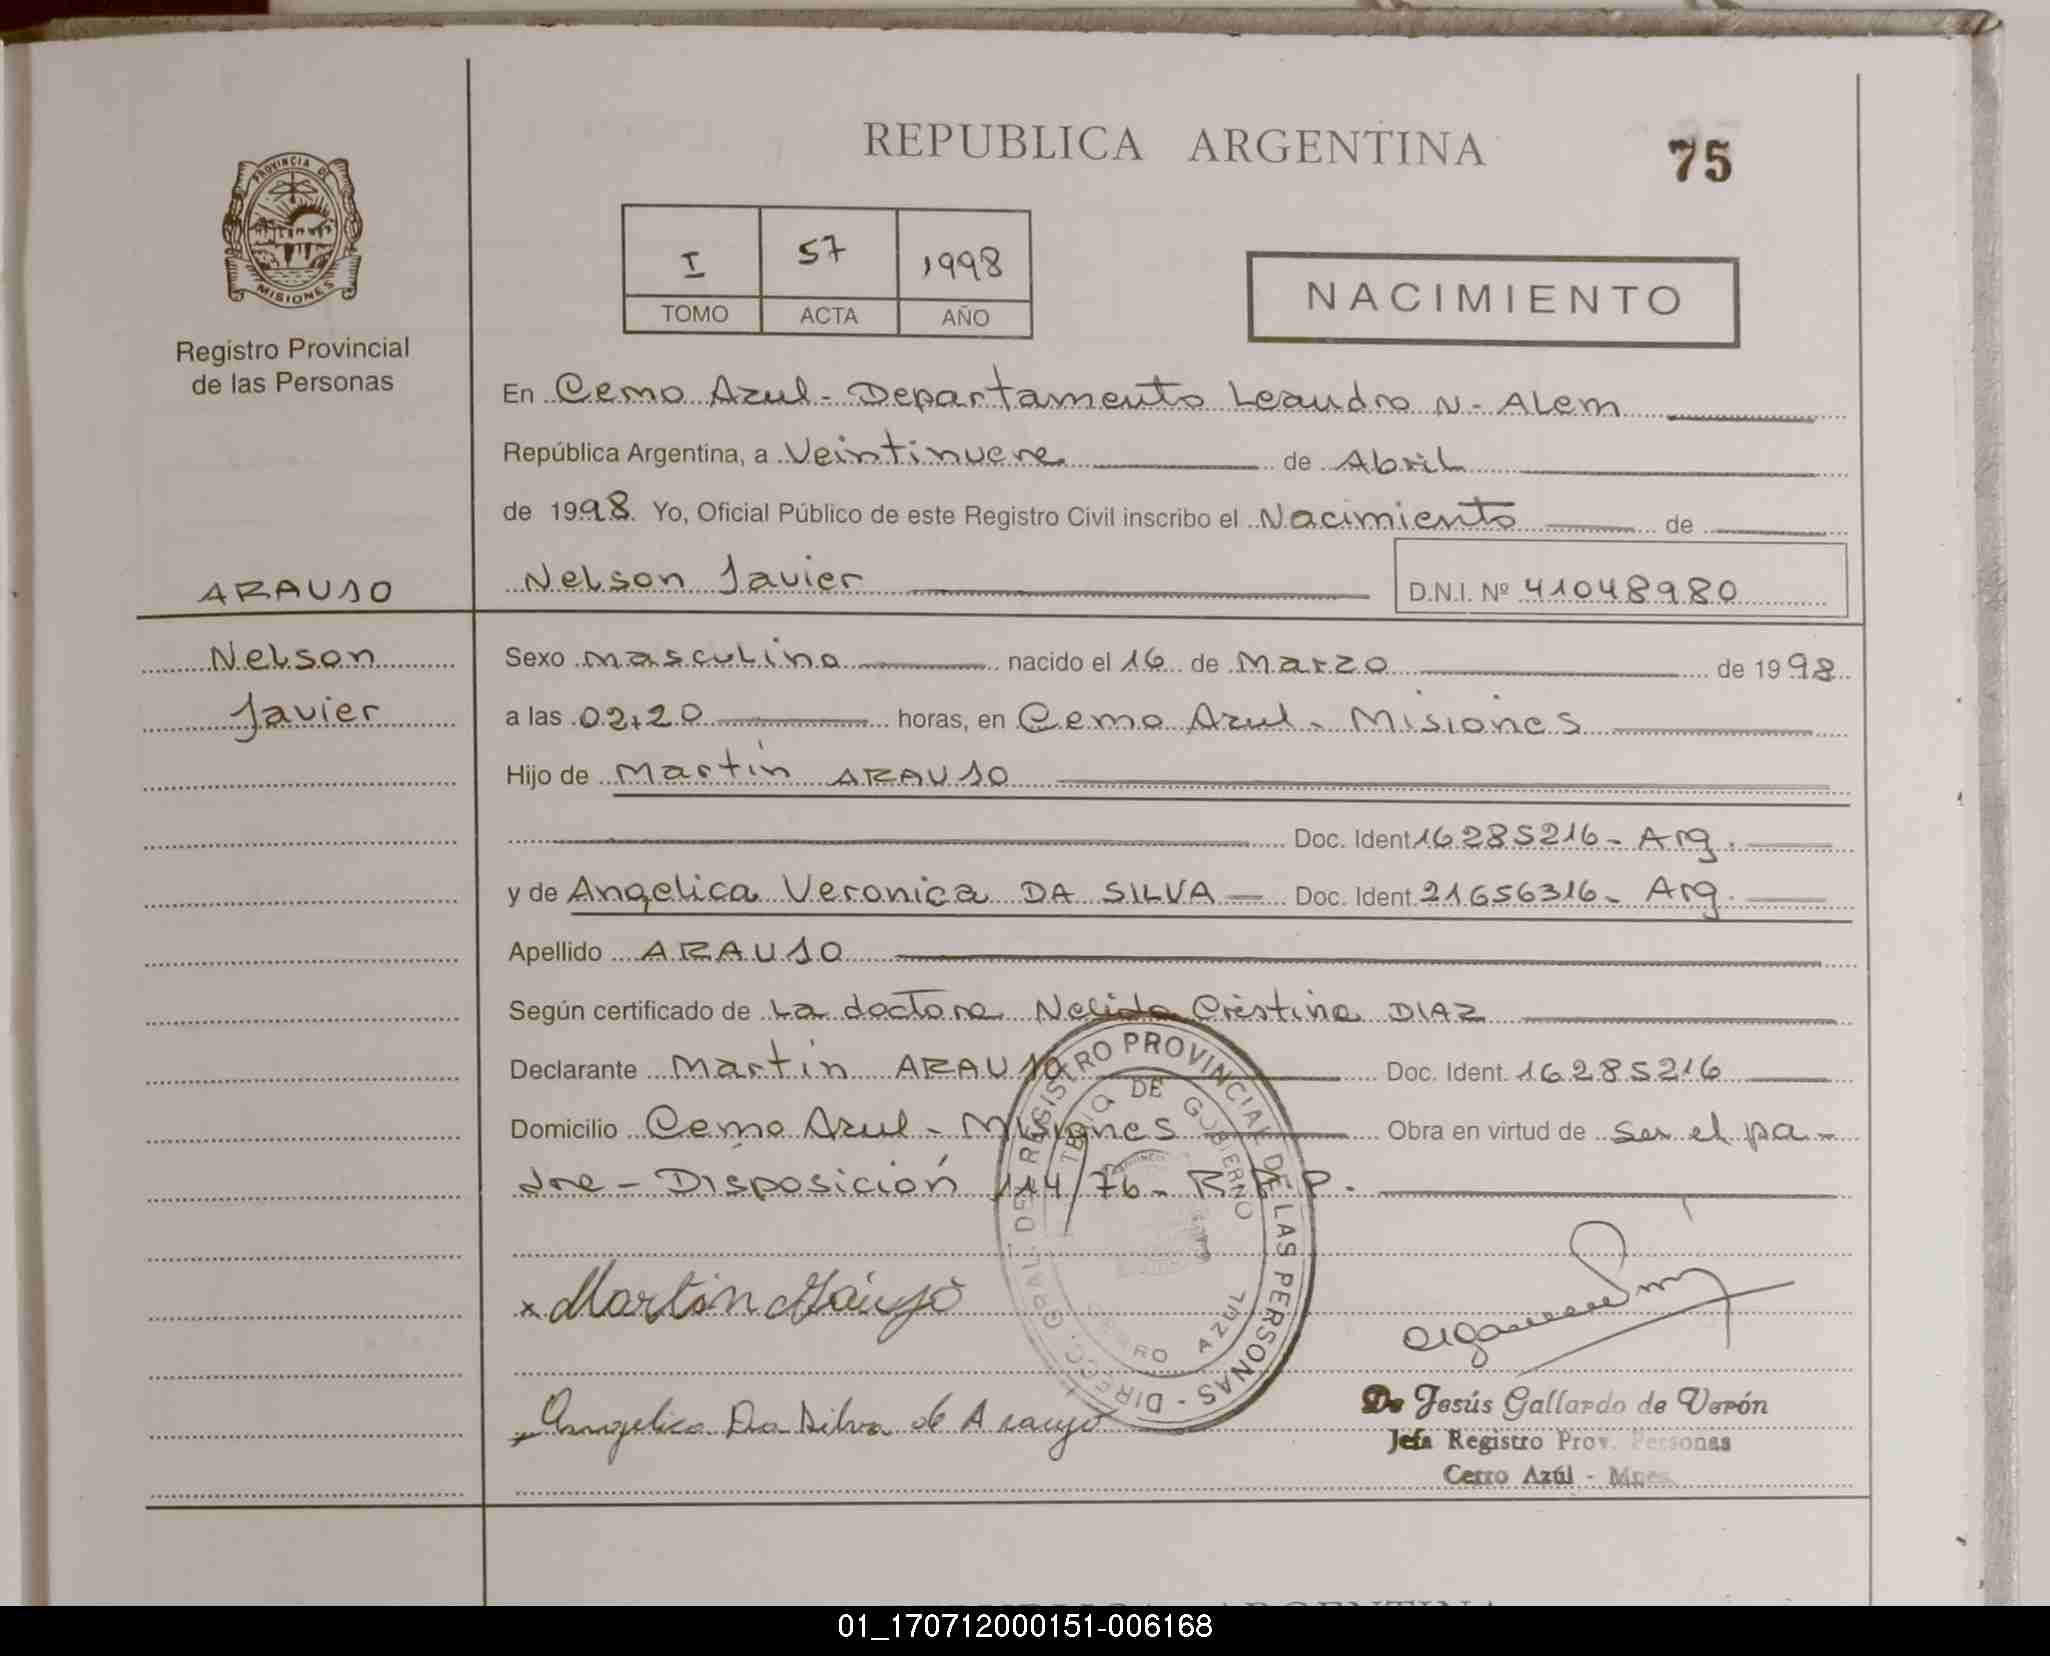 REPUBLICA ARGENTINA
75
PROVINCIA DE
MISIONES
Registro Provincial
de las Personas
I 57 1998
TOMO ACTA AÑO
NACIMIENTO
En Cerro Azul - Departamento Leandro N. Alem
República Argentina, a Veintinueve de Abril
de 1998. Yo, Oficial Público de este Registro Civil inscribo el Nacimiento de
ARAUJO
Nelson Javier D.N.I. Nº 41048980
Nelson
Javier
Sexo masculino nacido el 16 de Marzo de 1998
a las 02,20 horas, en Cerro Azul - Misiones
Hijo de Martín ARAUJO
Doc. Ident 16285216 - Arg.
y de Angelica Veronica DA SILVA Doc. Ident. 21656316 - Arg.
Apellido ARAUJO
Según certificado de La doctora Nelida Cristina DIAZ
Declarante Martin ARAUJO Doc. Ident. 16285216
Domicilio Cerro Azul - Misiones Obra en virtud de ser el pa-
dre - Disposición 114/76 - R.P.P.
Martin Araujo
Angelica Da Silva de Araujo
DIRECC. GRAL. DEL REGISTRO PROVINCIAL DE LAS PERSONAS
DE GOBIERNO
CERRO AZUL
De Jesús Gallardo de Verón
Jefa Registro Prov. Personas
Cerro Azúl - Mnes.
01_170712000151-006168